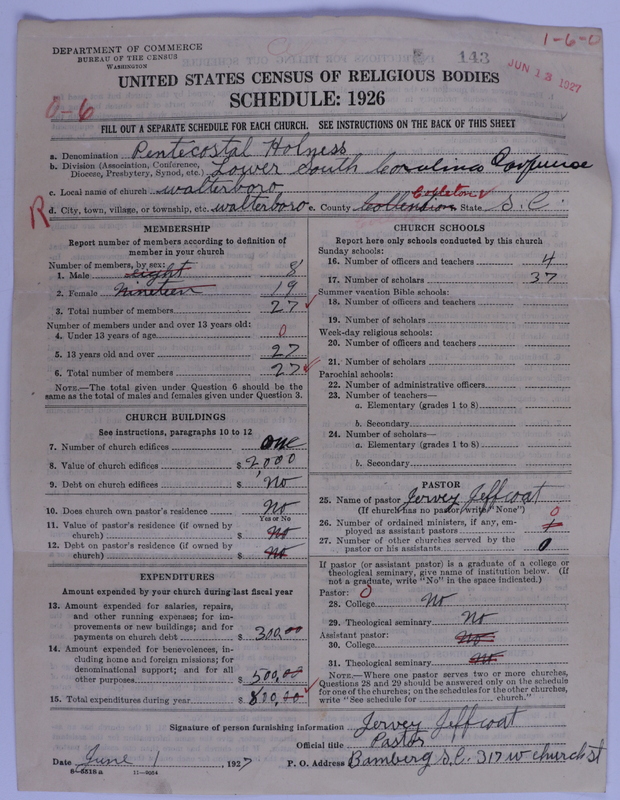 1-6-0
DEPARTMENT OF COMMERCE
BUREAU OF THE CENSUS
WASHINGTON
143
JUN 13 1927
UNITED STATES CENSUS OF RELIGIOUS BODIES
0-6
SCHEDULE: 1926
FILL OUT A SEPARATE SCHEDULE FOR EACH CHURCH. SEE INSTRUCTIONS ON THE BACK OF THIS SHEET
a. Denomination Pentecostal Holness
b. Division (Association, Conference, Diocese, Presbytery, Synod, etc.) Lower South Carolina
c. Local name of church walterboro
R d. City, town, village, or township, etc. walterboro e. County Colleton State S.C.
MEMBERSHIP
Report number of members according to definition of
member in your church
Number of members, by sex:
1. Male eight 8
2. Female nineteen 19
3. Total number of members 27
Number of members under and over 13 years old:
4. Under 13 years of age 0
5. 13 years old and over 27
6. Total number of members 27
NOTE.—The total given under Question 6 should be the
same as the total of males and females given under Question 3.
CHURCH BUILDINGS
See instructions, paragraphs 10 to 12
7. Number of church edifices one
8. Value of church edifices $ 2,000
9. Debt on church edifices $ No
10. Does church own pastor's residence No
Yes or No
11. Value of pastor's residence (if owned by
church) $ No
12. Debt on pastor's residence (if owned by
church) $ No
EXPENDITURES
Amount expended by your church during last fiscal year
13. Amount expended for salaries, repairs,
and other running expenses; for im-
provements or new buildings; and for
payments on church debt $ 300.00
14. Amount expended for benevolences, in-
cluding home and foreign missions; for
denominational support; and for all
other purposes $ 500.00
15. Total expenditures during year $ 800.00
CHURCH SCHOOLS
Report here only schools conducted by this church
Sunday schools:
16. Number of officers and teachers 4
17. Number of scholars 37
Summer vacation Bible schools:
18. Number of officers and teachers
19. Number of scholars
Week-day religious schools:
20. Number of officers and teachers
21. Number of scholars
Parochial schools:
22. Number of administrative officers
23. Number of teachers—
a. Elementary (grades 1 to 8)
b. Secondary
24. Number of scholars—
a. Elementary (grades 1 to 8)
b. Secondary
PASTOR
25. Name of pastor Jervey Jeffcoat
(If church has no pastor, write "None")
26. Number of ordained ministers, if any, em-
ployed as assistant pastors 0
27. Number of other churches served by the
pastor or his assistants 0
If pastor (or assistant pastor) is a graduate of a college or
theological seminary, give name of institution below. (If
not a graduate, write "No" in the space indicated.)
Pastor: 0
28. College No
29. Theological seminary No
Assistant pastor:
30. College No
31. Theological seminary No
NOTE.—Where one pastor serves two or more churches,
Questions 28 and 29 should be answered only on the schedule
for one of the churches; on the schedules for the other churches,
write "See schedule for church."
Signature of person furnishing information Jervey Jeffcoat
Official title Pastor
Date June 1, 1927 P. O. Address Bamberg S.C. 317 w church st
8-5518a 11-9034